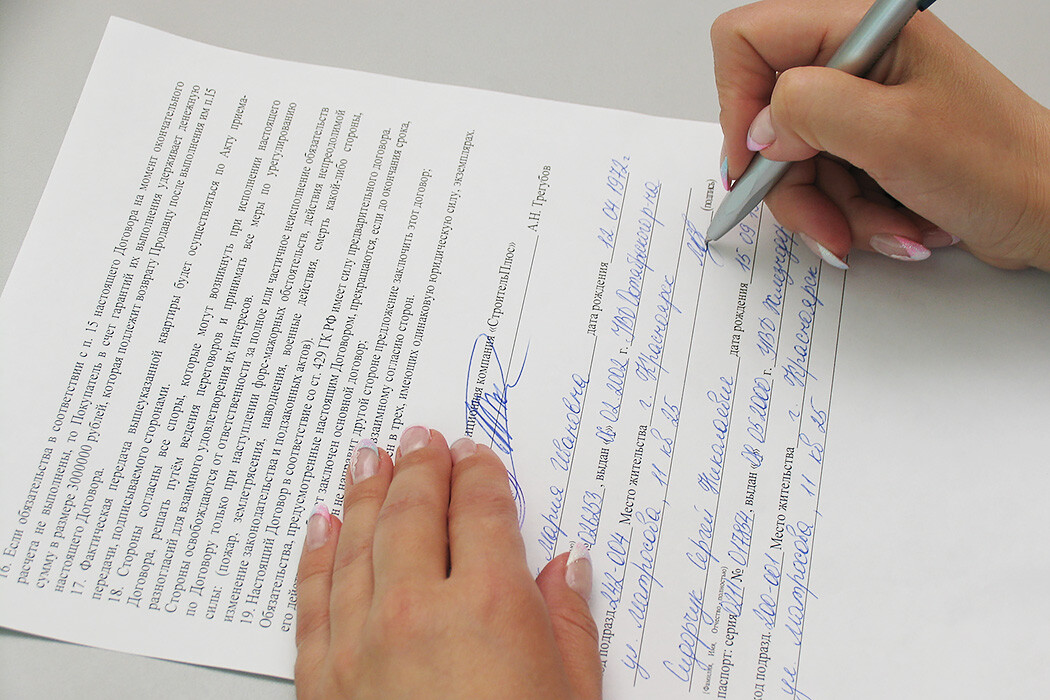 16. Если обязательства в соответствии с п. 15 настоящего Договора на момент окончательного
расчета не выполнены, то Покупатель в счет гарантий их выполнения удерживает денежную
сумму в размере 3000000 рублей, которая подлежит возврату Продавцу после выполнения им п.15
настоящего Договора.
17. Фактическая передача вышеуказанной квартиры будет осуществляться по Акту приема-
передачи, подписываемого сторонами.
18. Стороны согласны все споры, которые могут возникнуть при исполнении настоящего
Договора, решать путём ведения переговоров и принимать все меры по урегулированию
разногласий для взаимного удовлетворения их интересов.
Стороны освобождаются от ответственности за полное или частичное неисполнение обязательств
по Договору только при наступлении форс-мажорных обстоятельств, действия непреодолимой
силы: (пожар, землетрясения, наводнения, военные действия, смерть какой-либо стороны,
изменение законодательства и подзаконных актов).
19. Настоящий Договор в соответствие со ст. 429 ГК РФ имеет силу предварительного договора.
Обязательства, предусмотренные настоящим Договором, прекращаются, если до окончания срока,
его дей заключен основной договор:
не направит другой стороне предложение заключить этот договор;
взаимному согласию сторон.
ен в трех, имеющих одинаковую юридическую силу, экземплярах.
компания «СтроительПлюс»
А.Н. Трегубов
Мария Ивановна дата рождения 12 04 1972 г
026253, выдан « » 02 2002 г.
код подразд. 242-004 Место жительства г. Красноярс
ул. Матросова, 11 кв 25
(подпись)
Сидорчук Сергей Николаеви дата рождения 15 09
(Фамилия, Имя, Отчество полностью)
паспорт: серия № 017884, выдан « » 06 2000 г.
код подразд. Место жительства г. Красноярск
ул. Матросова, 11 кв 25